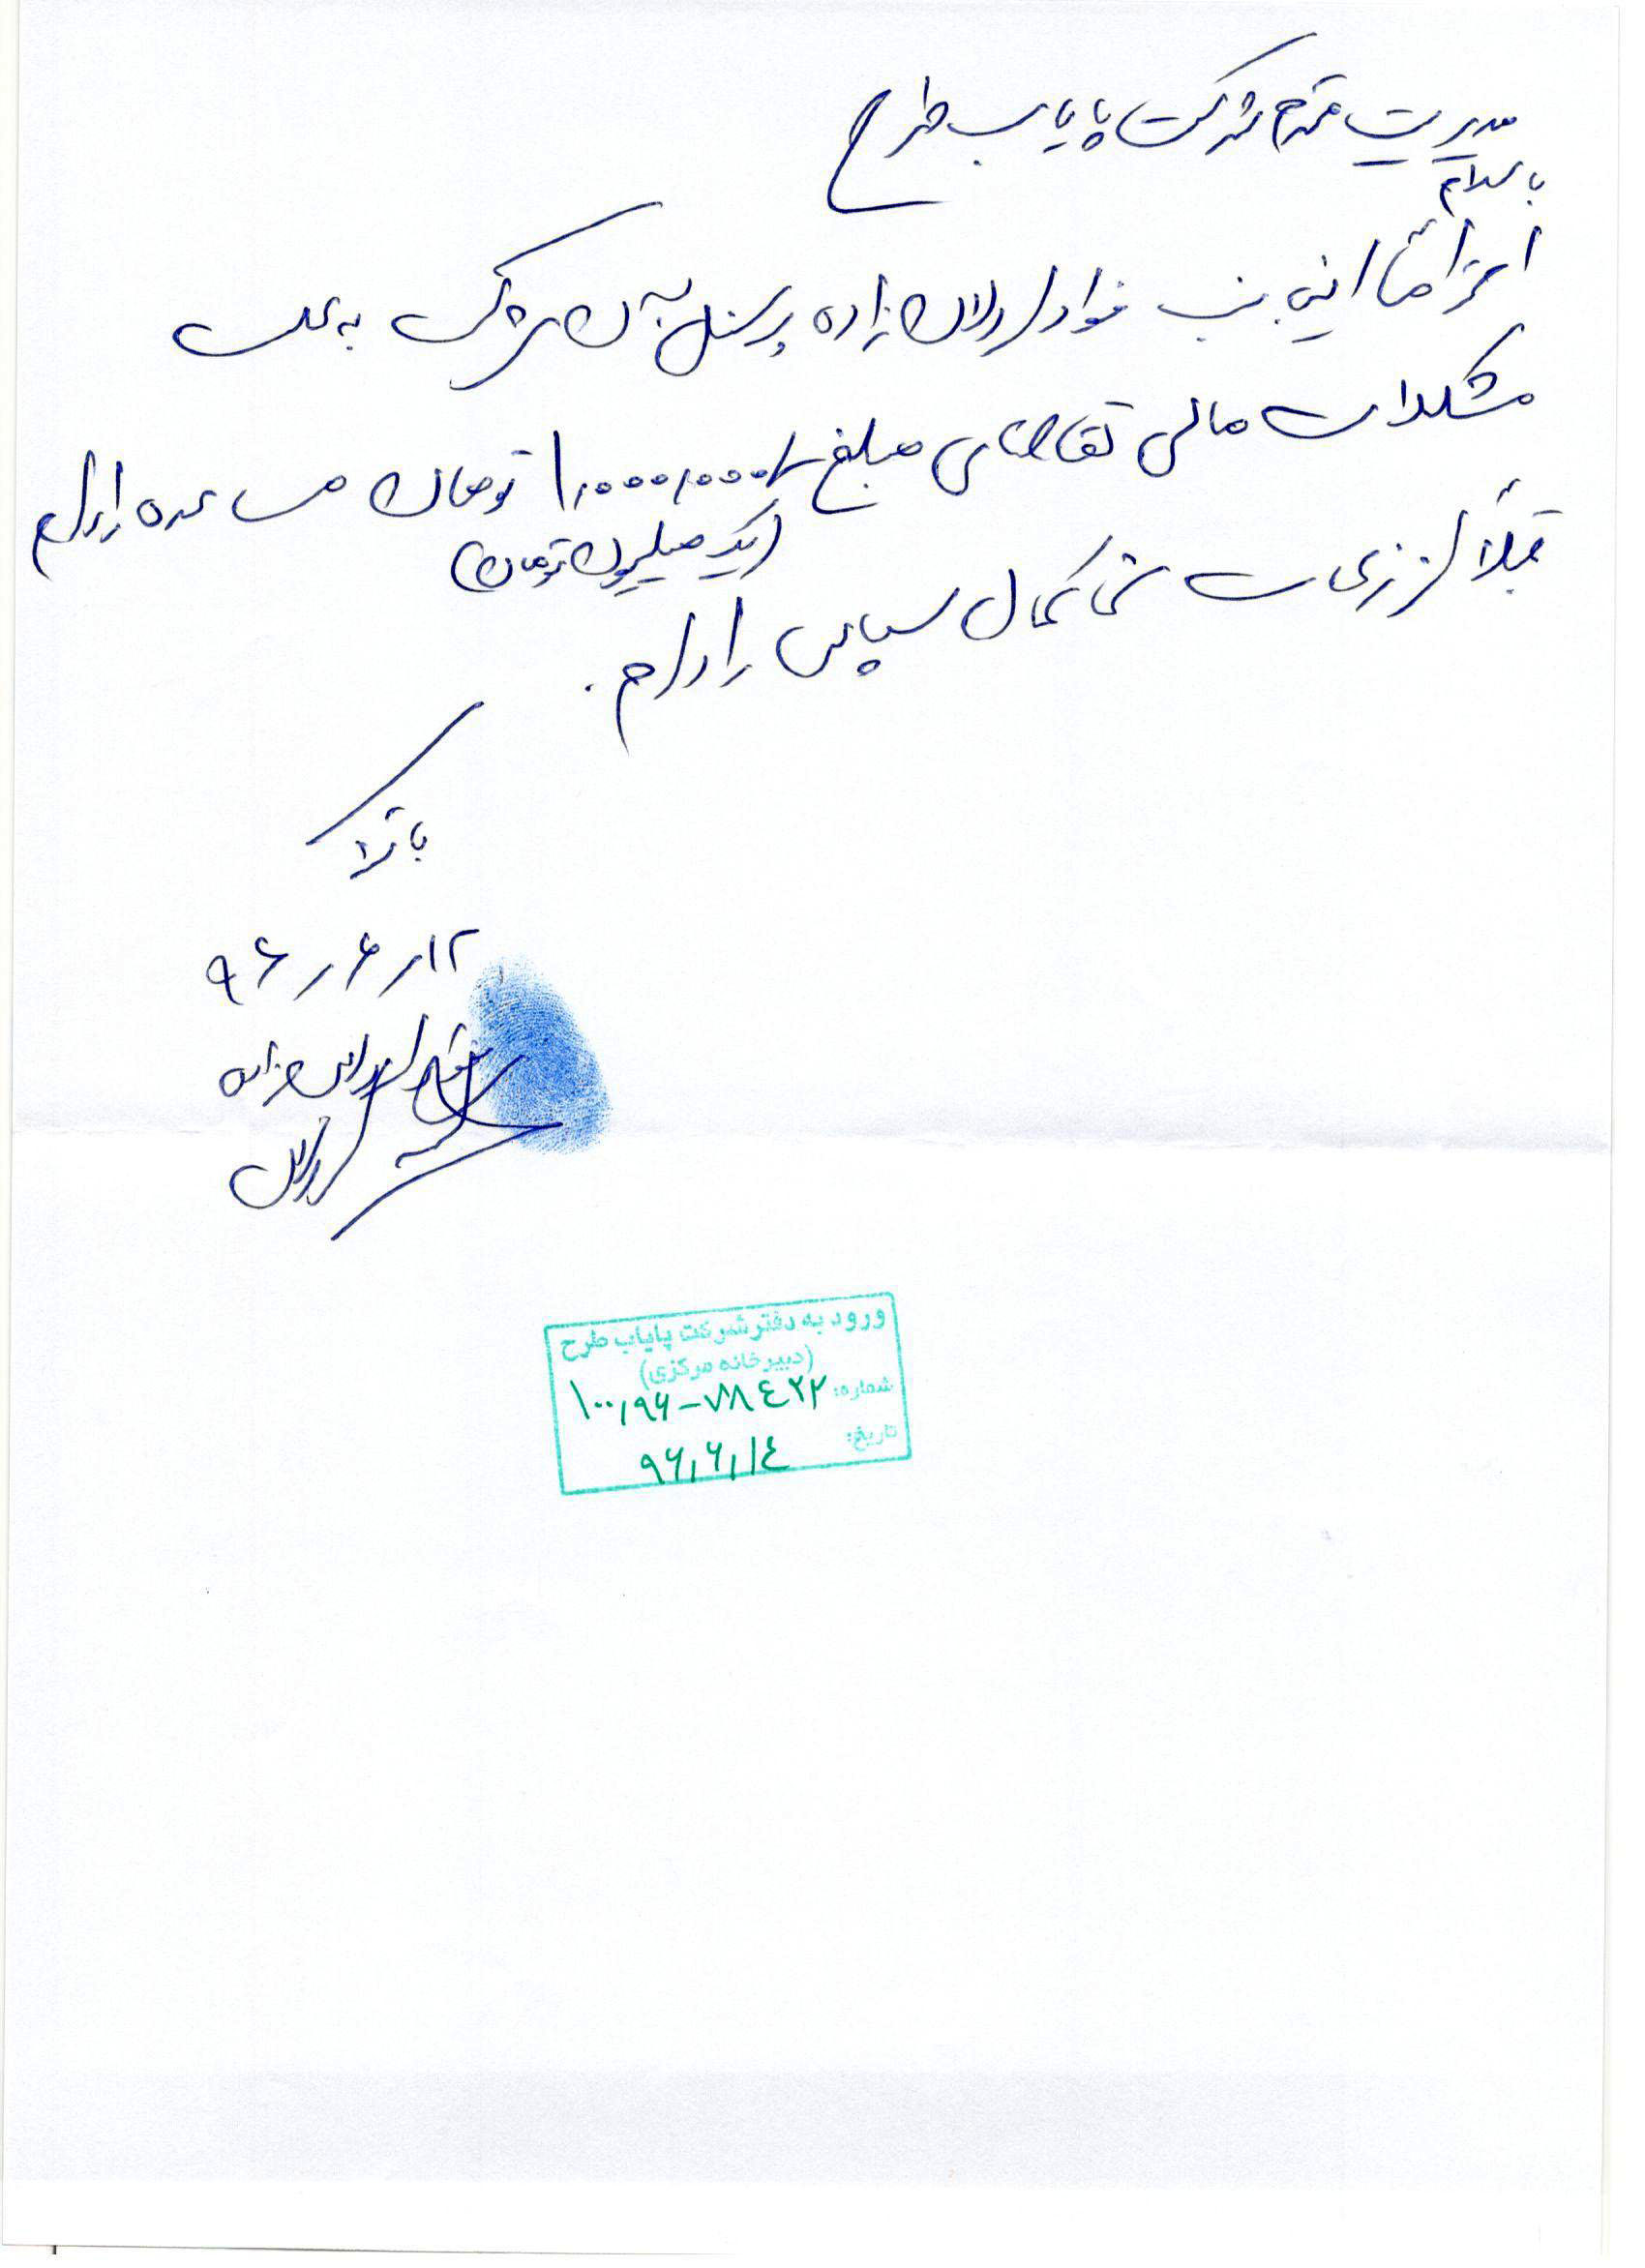 مدیریت محترم شرکت پایاب طرح
با سلام
احتراماً اینجانب فواد اردلان زاده پرسنل آن شرکت به علت
مشکلات مالی تقاضای مبلغ ۱,۰۰۰,۰۰۰ تومان مساعده را دارم
(یک میلیون تومان)
قبلاً از زحمات شما کمال سپاس را دارم.
با تشکر
۹۶/۶/۱۲
فواد اردلان زاده
ورود به دفتر شرکت پایاب طرح
(دبیرخانه مرکزی)
شماره: ۱۰۰,۹۶-۷۸۴۲۲
تاریخ: ۹۶,۶,۱۴